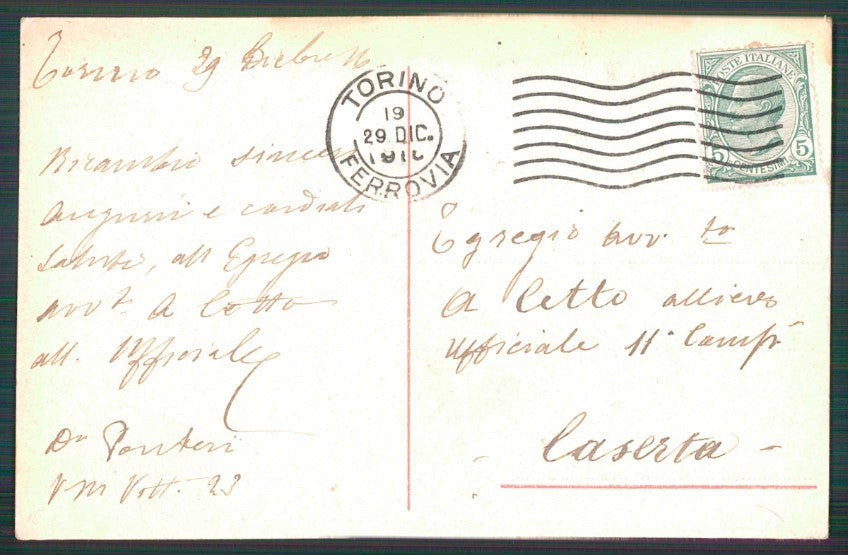 Torino 29 Dicbre
Ricambio sinceri
auguri e cordiali
saluti, all Egregio
avv to A Cotta
all. Ufficiale
Dr
Vm Vott. 23
TORINO
19
29. DIC.
FERROVIA
POSTE ITALIANE
5 CENTESIMI 5
Egregio avv. to
A Cotto allievo
Ufficiale 11° Comp
- Caserta -